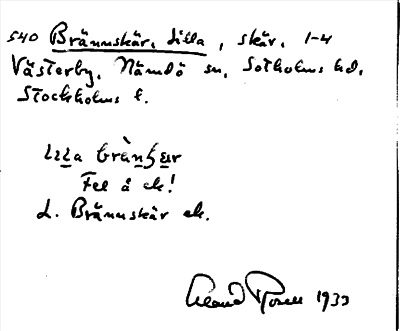 540 Brännskär, Lilla, skär, 1-4
Västerby, Nämdö sn, Sotholms hd,
Stockholms l.
Fel å ek!
L. Brännskär ek.
1933